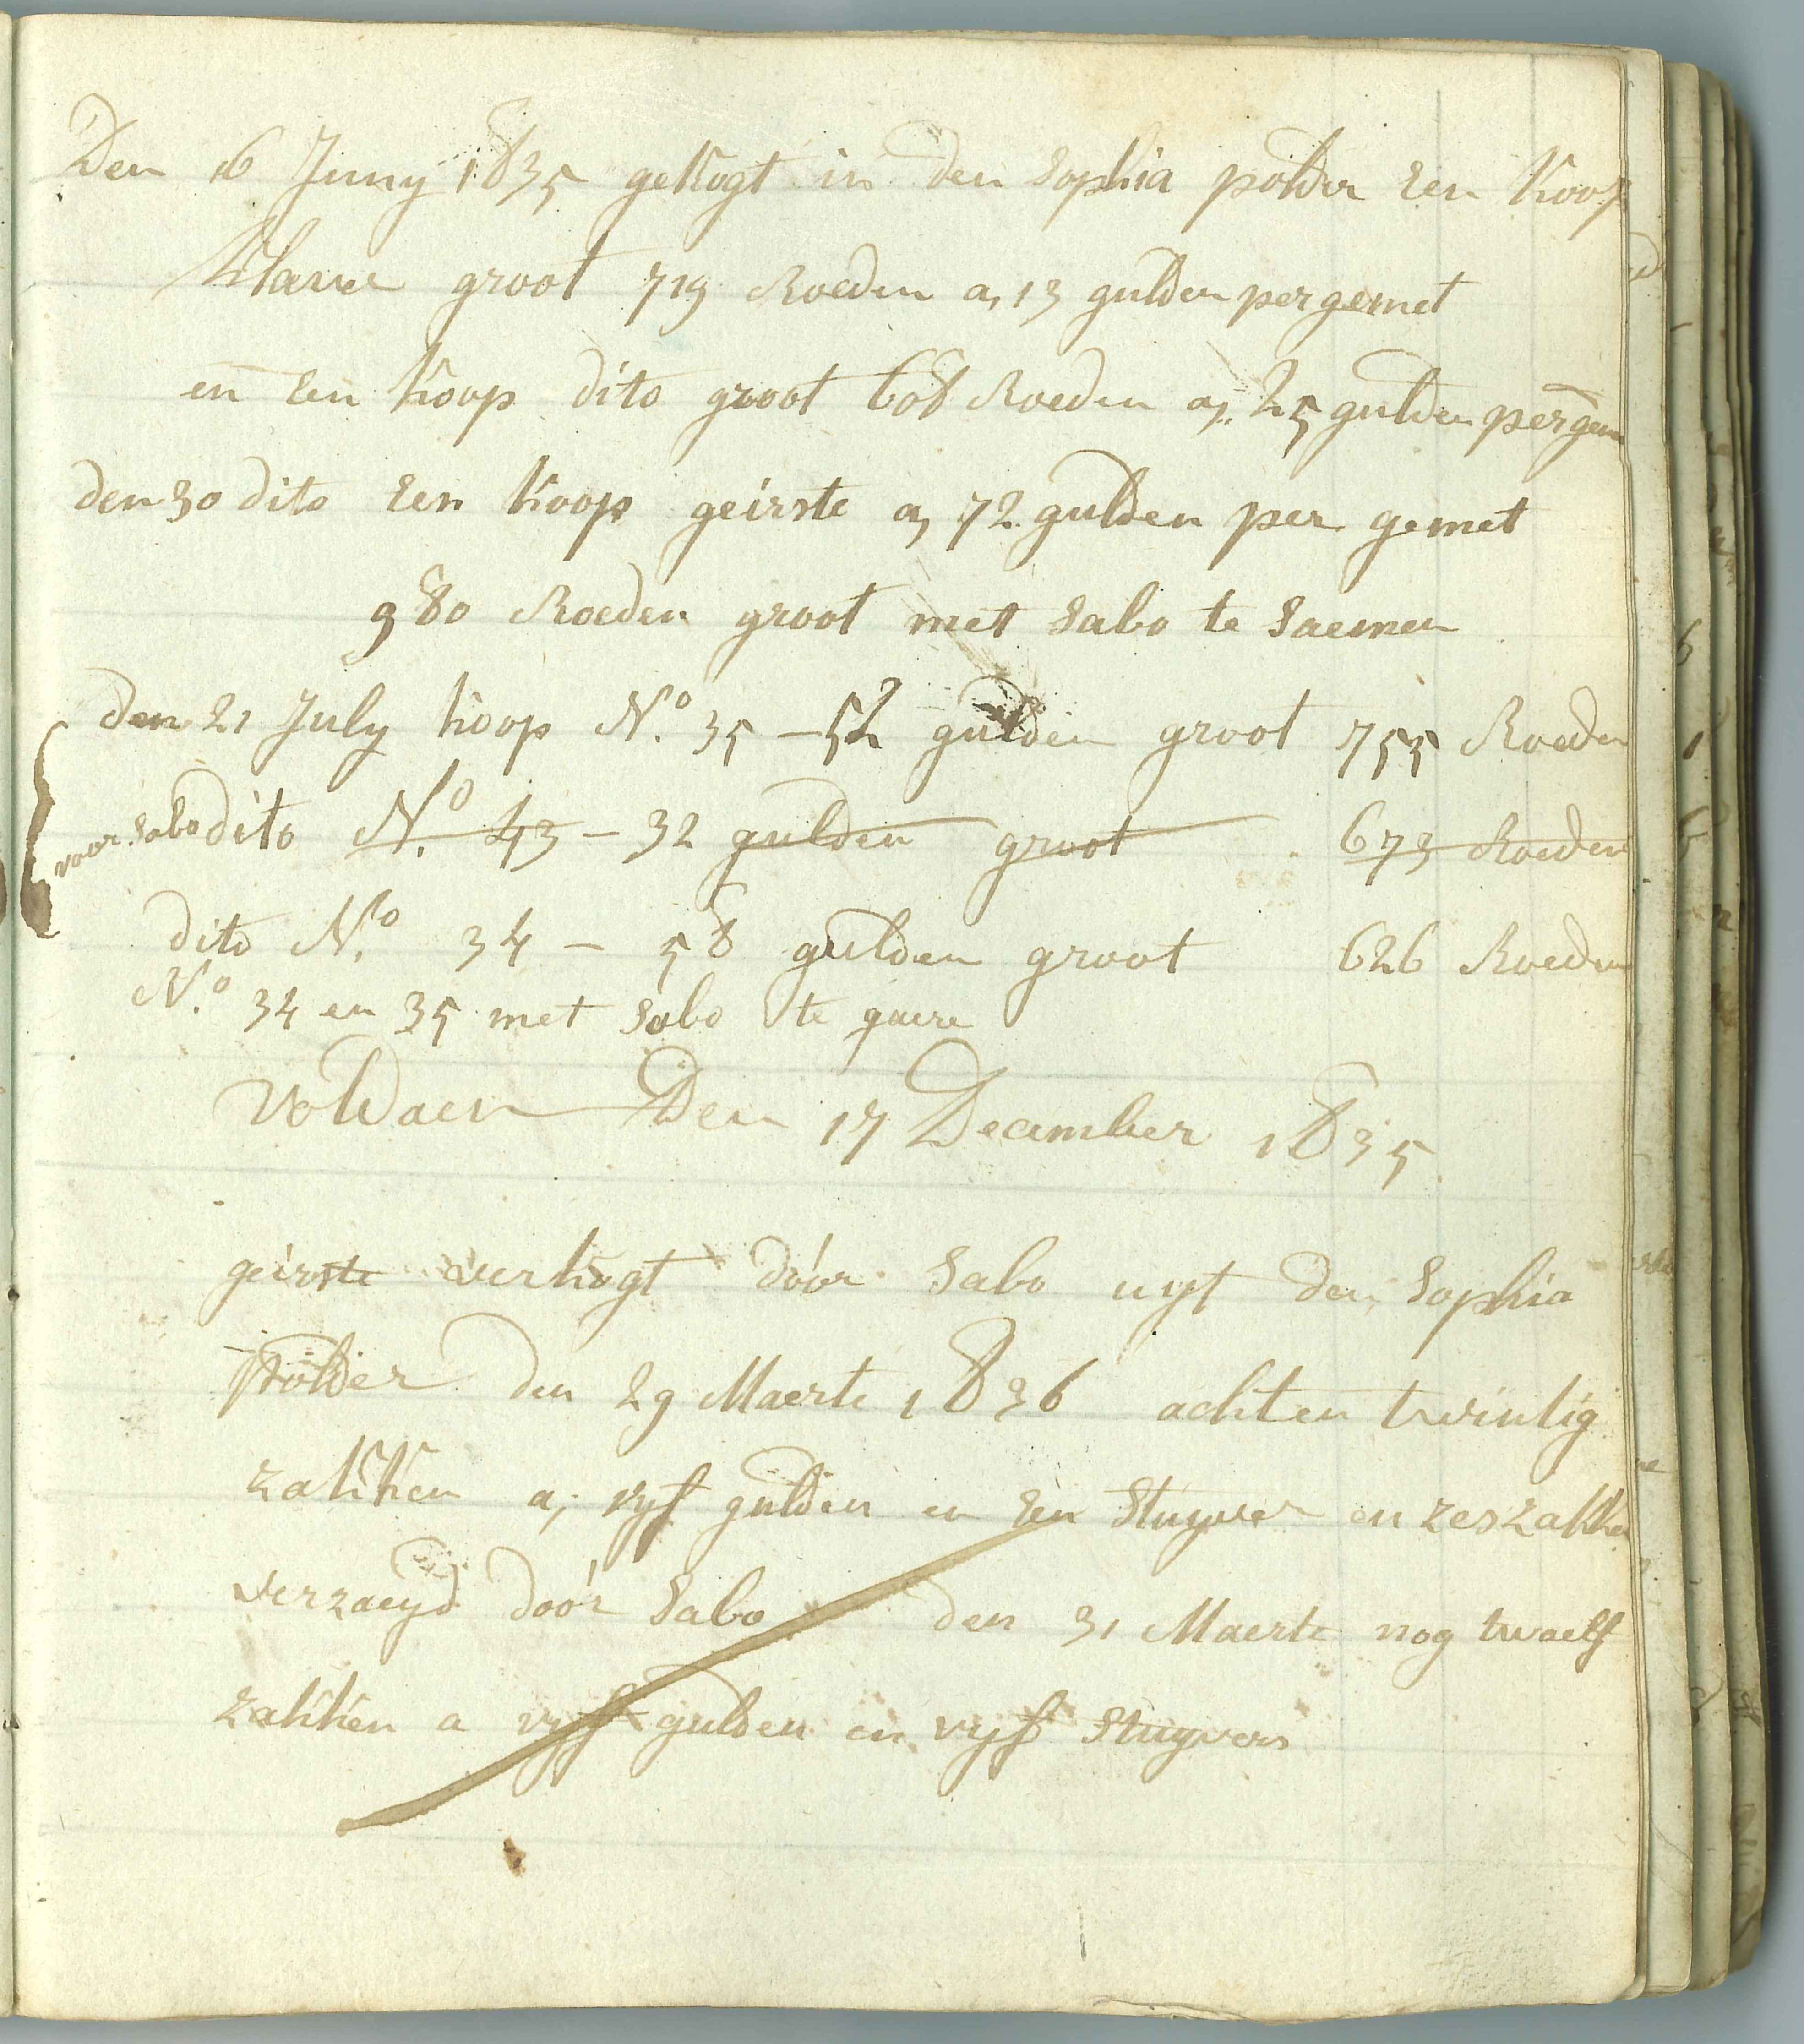 Den 16 Juny 1835 gekogt in den Sophia polder Een koop
klaver groot 719 Roeden a, 13 gulden per gemet
en Een koop dito groot 608 Roeden a, 25 gulden per gem
den 30 dito Een koop geirste a, 72 gulden per gemet
980 Roeden groot met Sabo te Saemen
den 21 July koop N.o 35 – 52 gulden groot 755 Roeden
voor Sabo dito N.o 43 – 32 gulden groot 673 Roeden
dito N.o 34 – 58 gulden groot 626 Roeden
N.o 34 en 35 met Sabo te gaere
voldaen Den 17 December 1835
geirste verkogt dóor Sabo uyt den Sophia
Polder den 29 Maerte 1836 acht en twintig
zakken a, vyf gulden en Een Stuyver en zes zakken
verzaeyd dóor Sabo den 31 Maerte nog twaelf
zakken a vyf gulden en vyf Stuyvers